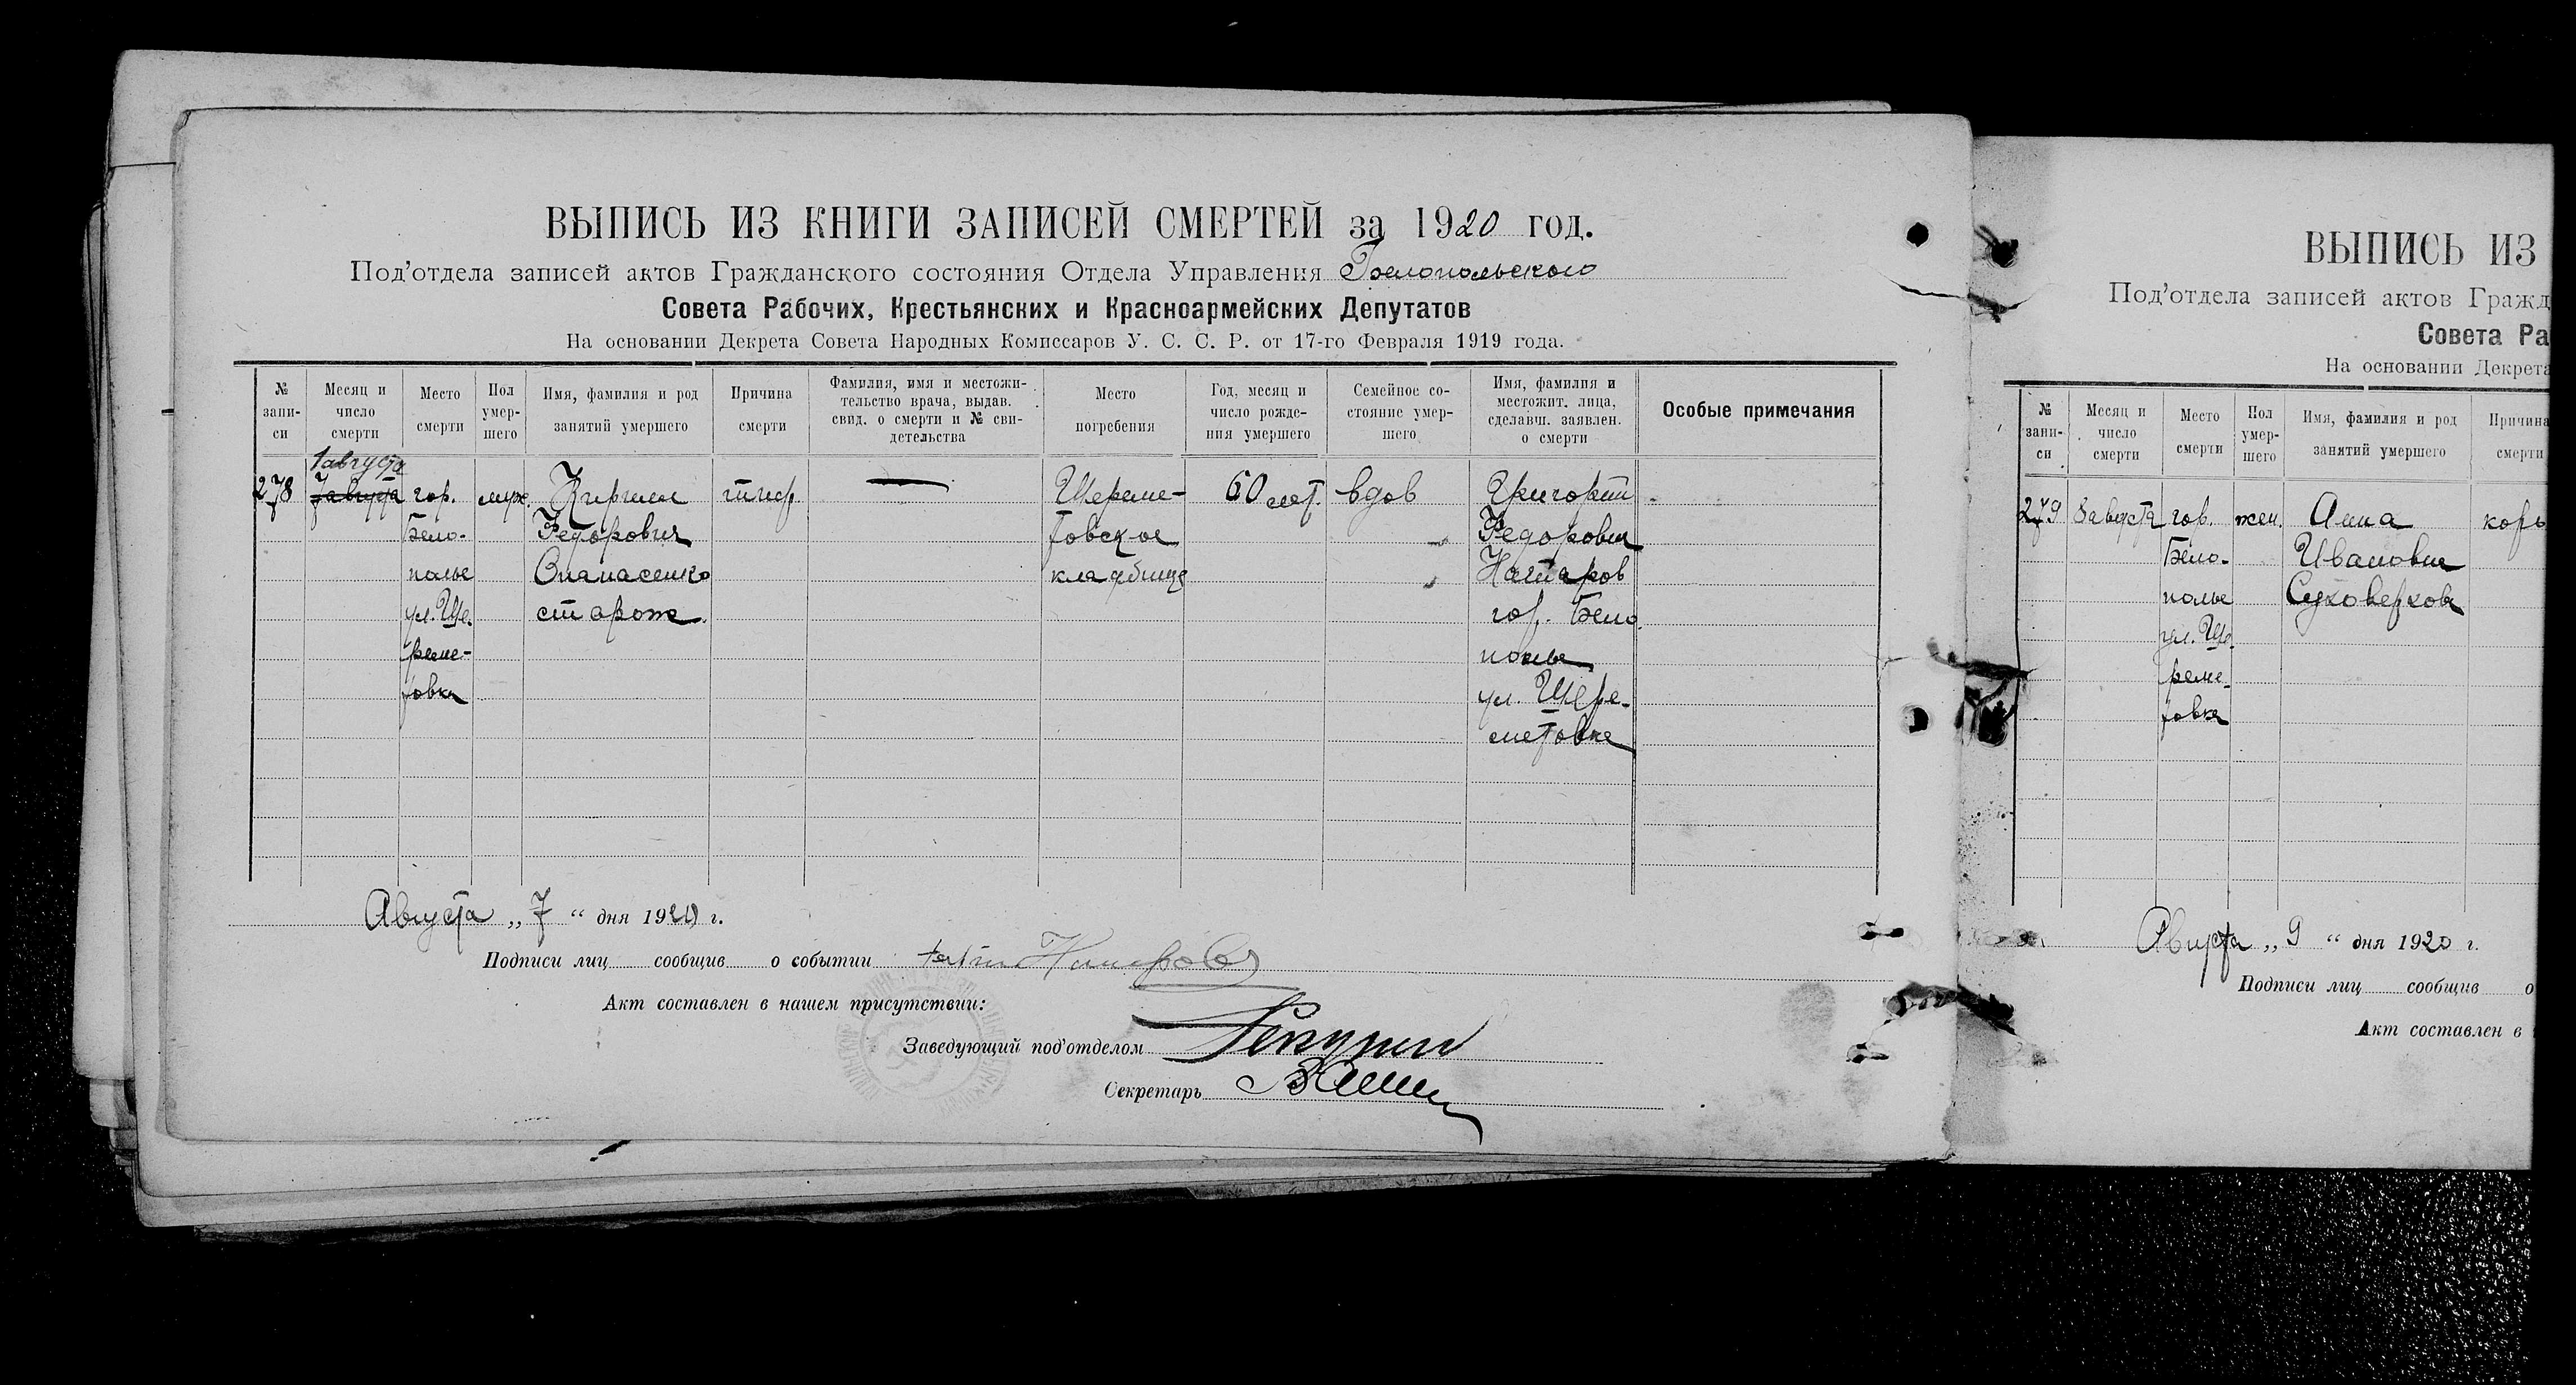 ВЫПИСЬ ИЗ КНИГИ ЗАПИСЕЙ СМЕРТЕЙ за 1920 год.
Под'отдела записей актов Гражданского состояния Отдела Управления Белопольского
Совета Рабочих, Крестьянских и Красноармейских Депутатов
На основании Декрета Совета Народных Комиссаров У. С. С. Р. от 17-го Февраля 1919 года.
№ запи- си
Месяц и число смерти
Место смерти
Пол умер- шего
Имя, фамилия и род занятий умершего
Причина смерти
Фамилия, имя и местожи- тельство врача, выдав. свид. о смерти и № сви- детельства
Место погребения
Год, месяц и число рожде- ния умершего
Семейное со- стояние умер- шего
Имя, фамилия и местожит. лица, сделавш. заявлен. о смерти
Особые примечания
1 августа
278 7 августа гор. муж. Кирилл тиф. — Шереме- 60 лет. вдов Григорий
Бело- Федорович товское Федорович
полье Опанасенко кладбище
ул. Ше- сторож. гор. Бело
реме- полье
товка ул. Шере-
метовка
Августа „ 7 “ дня 1920 г.
Подписи лиц сообщив о событии
Акт составлен в нашем присутствии:
Заведующий под'отделом
Секретарь
ВЫПИСЬ ИЗ
Под'отдела записей актов Гражд
Совета Ра
На основании Декрета
№ запи- си
Месяц и число смерти
Место смерти
Пол умер- шего
Имя, фамилия и род занятий умершего
Причина смерти
279 8 августа гор. жен. Анна корь
Бело- Ивановна
полье Суховеркова
ул. Ше-
реме-
товка
Августа „ 9 “ дня 1920 г.
Подписи лиц сообщив о
Акт составлен в